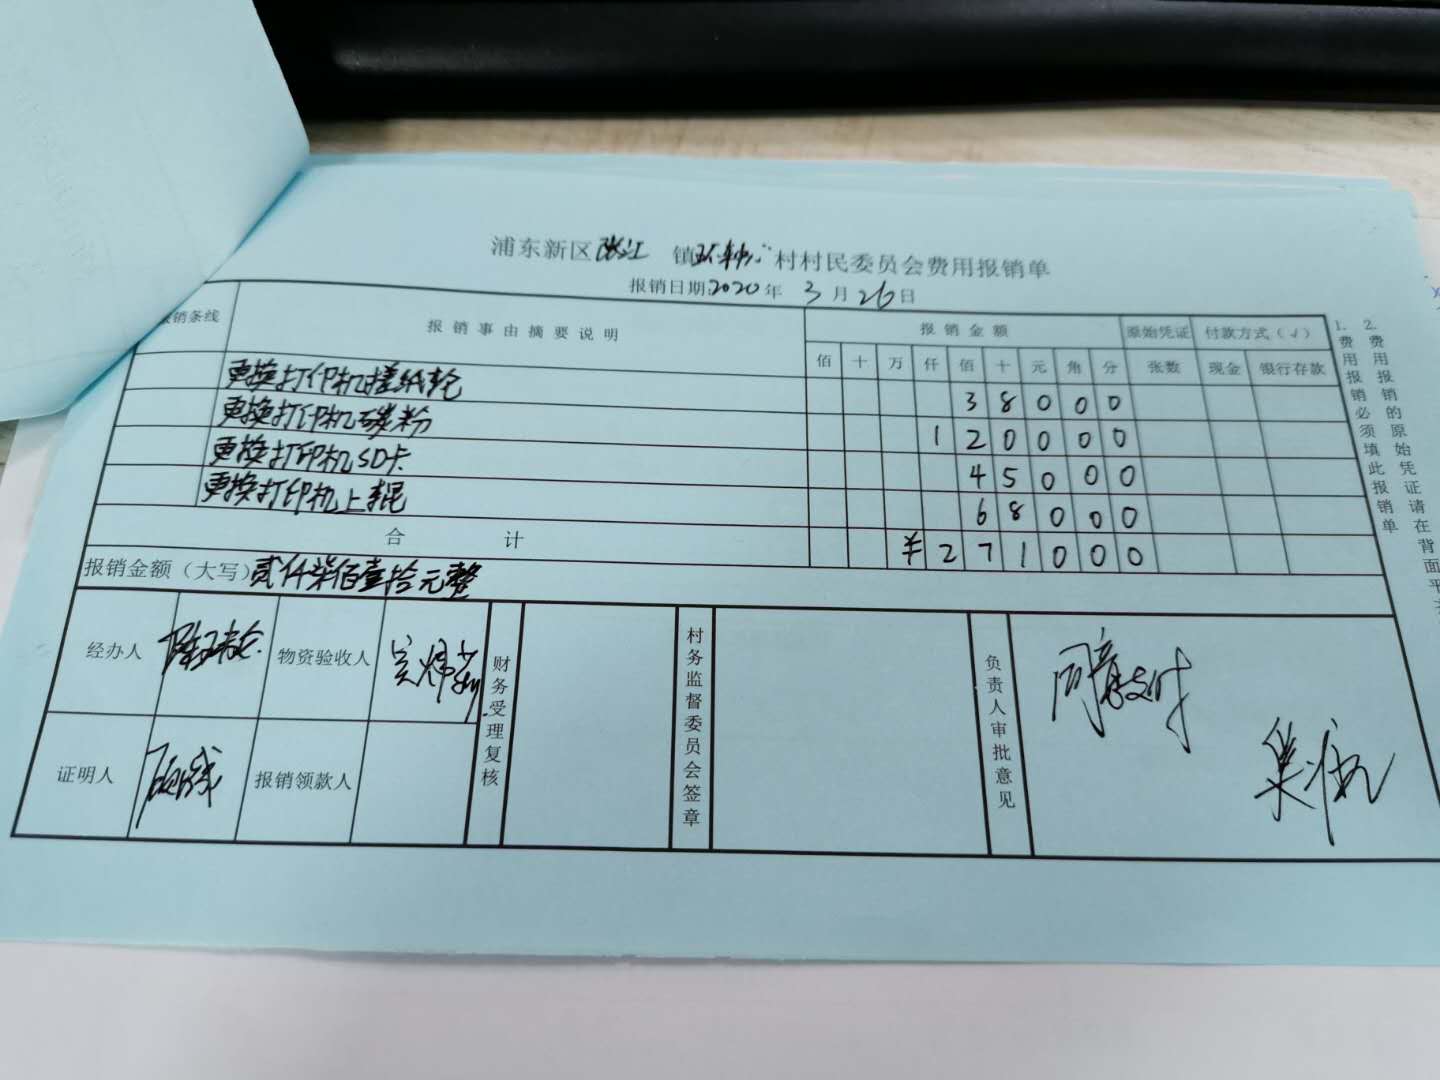 浦东新区张江 镇环东中心村村民委员会费用报销单
报销日期2020年 3月26日
报销条线 报销事由摘要说明 报销金额 原始凭证 付款方式(√)
佰 十 万 仟 佰 十 元 角 分 张数 现金 银行存款
更换打印机搓纸轮 3 8 0 0 0
更换打印机碳粉 1 2 0 0 0 0
更换打印机SD卡 4 5 0 0 0
更换打印机上辊 6 8 0 0 0
合 计 ¥ 2 7 1 0 0 0
报销金额(大写)贰仟柒佰壹拾元整
经办人 物资验收人 财务受理复核 村务监督委员会签章 负责人审批意见 同意支付
证明人 报销领款人
1. 费用报销必须填此报销单
2. 费用报销的原始凭证请在背面平